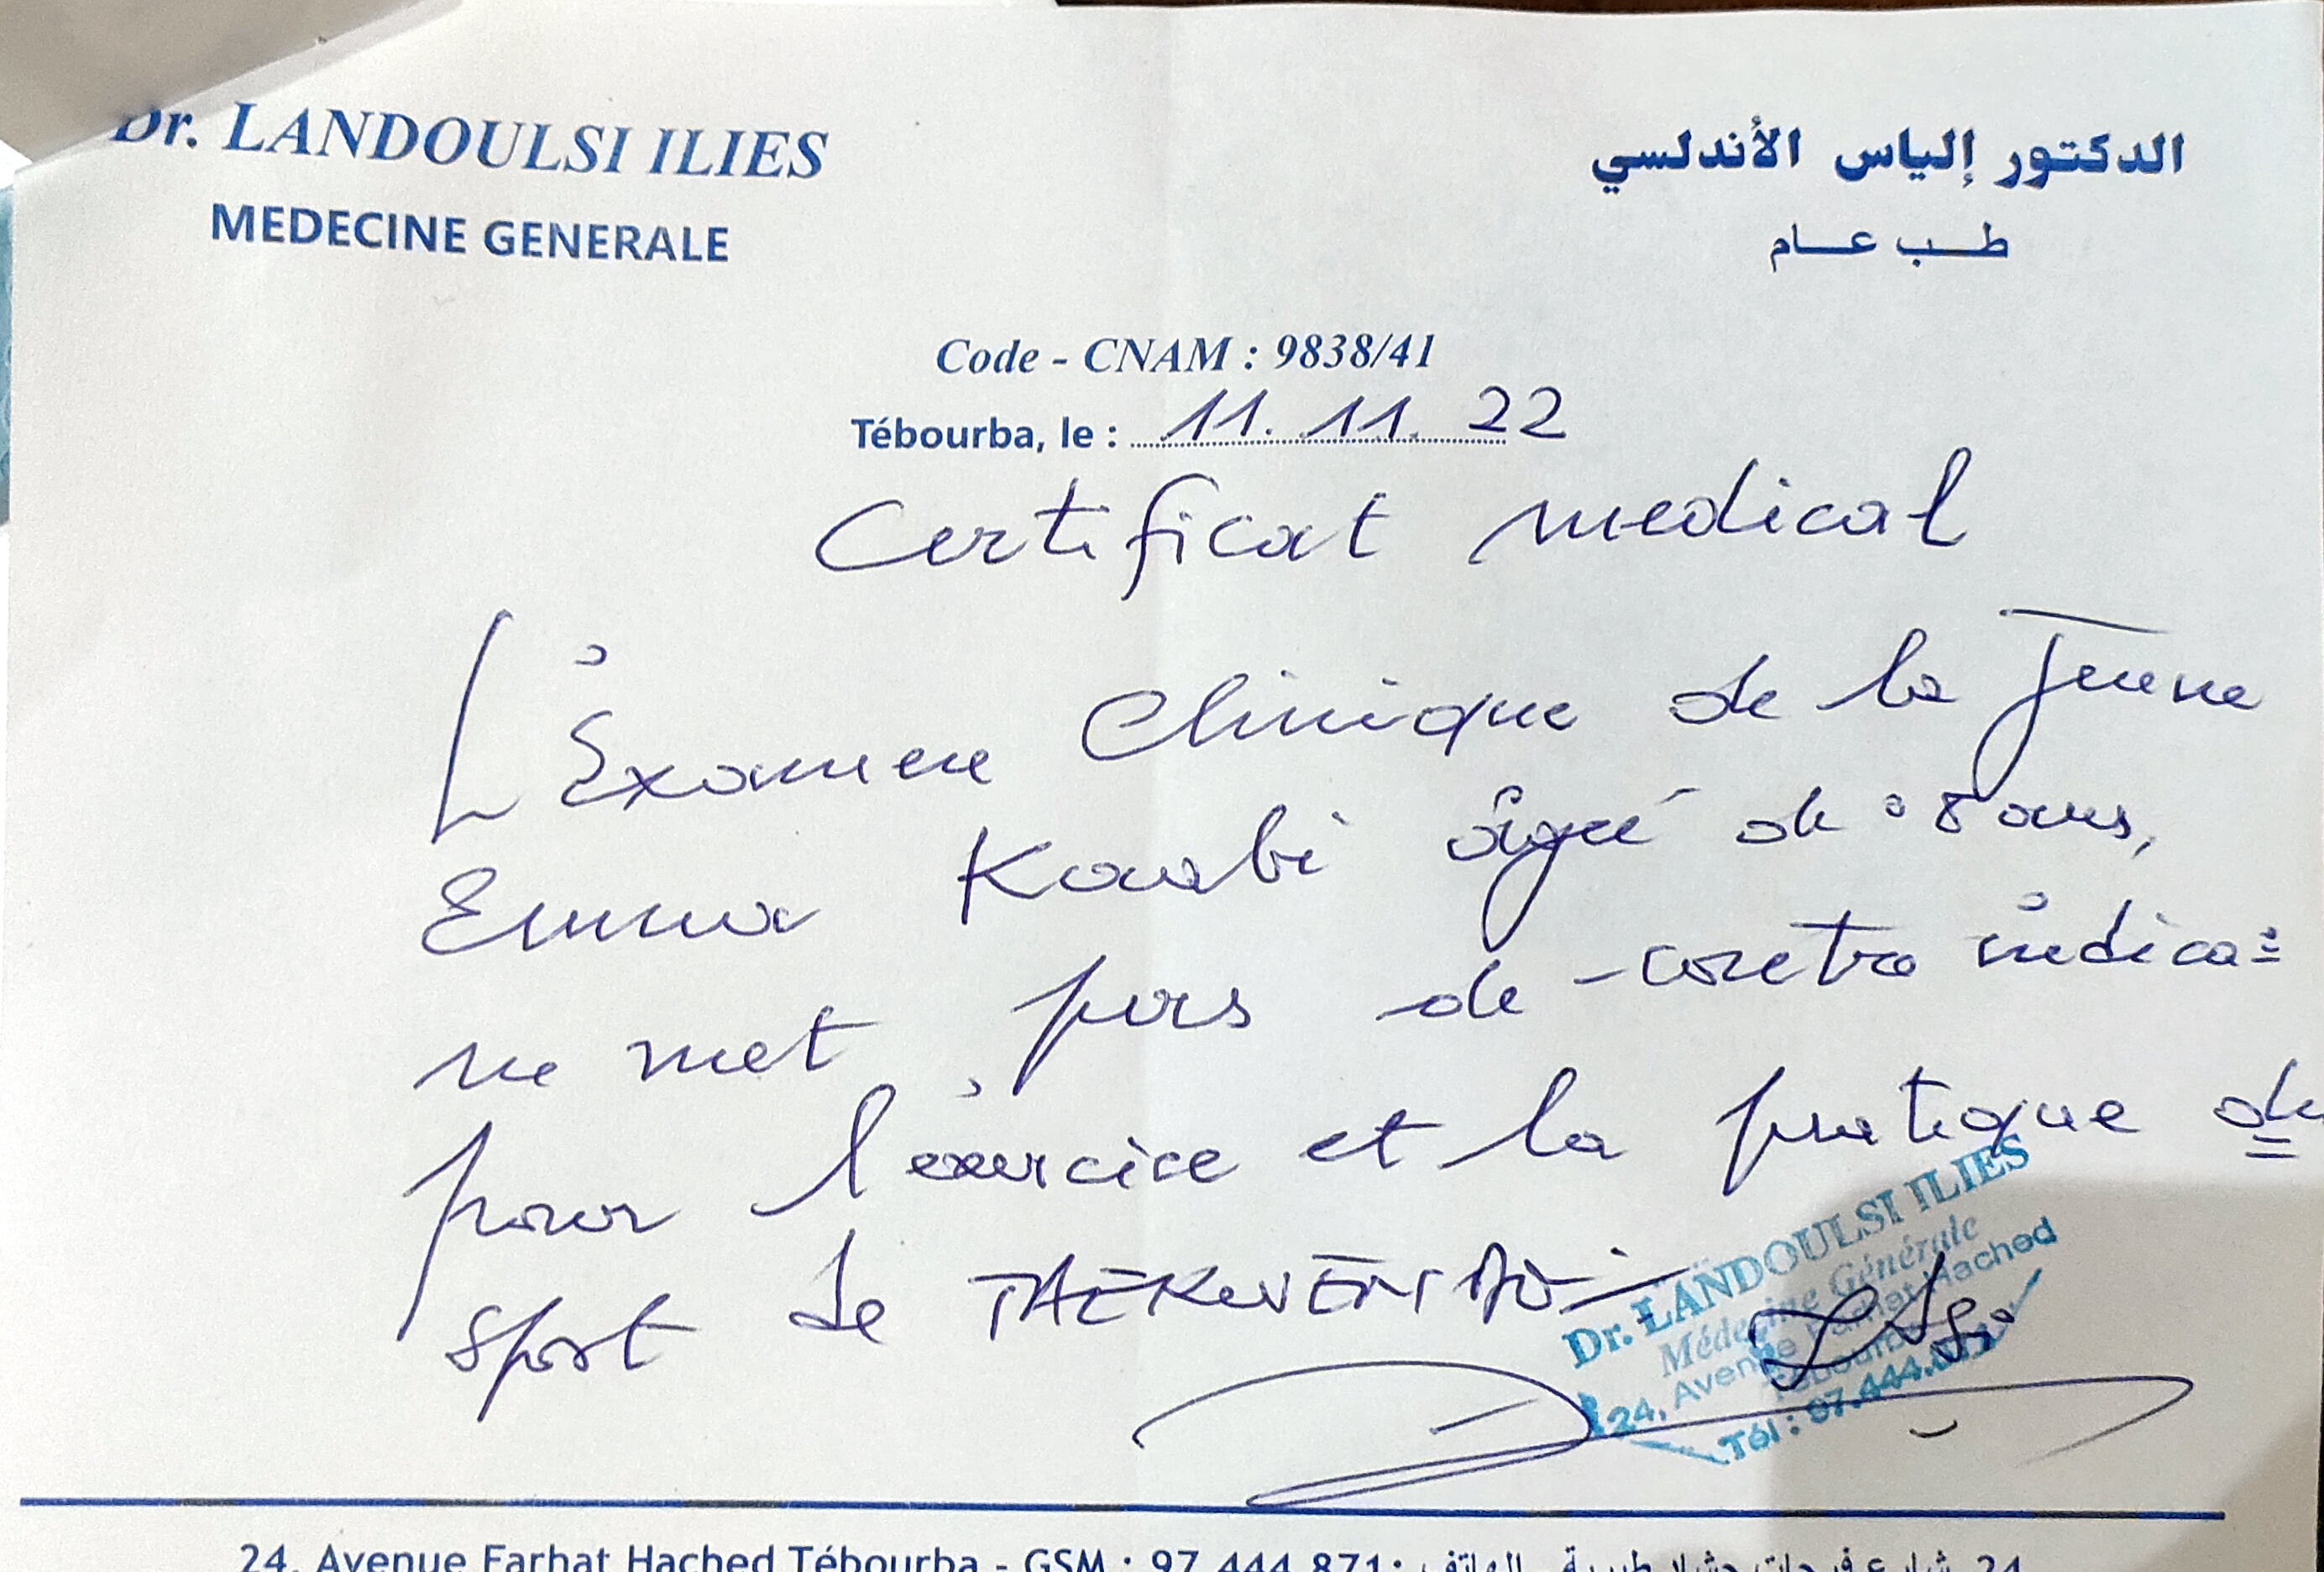 Dr. LANDOULSI ILIES
MEDECINE GENERALE
الدكتور إلياس الأندلسي
طب عام
Code - CNAM : 9838/41
Tébourba, le : 11. 11. 22
Certificat medical
L'Examen Clinique de la Jeune
Emna Kaabi âgé de : 8 ans,
ne met pas de contre indica=
pour l'exercice et la pratique de
Sport de TAEKWENDO
Dr. LANDOULSI ILIES
Médecine Générale
24, Avenue Farhat Hached
Tébourba
Tél : 97.444.871
24, Avenue Farhat Hached Tébourba - GSM : 97 444 871 : الهاتف - 24 شارع فرحات حشاد طبربة